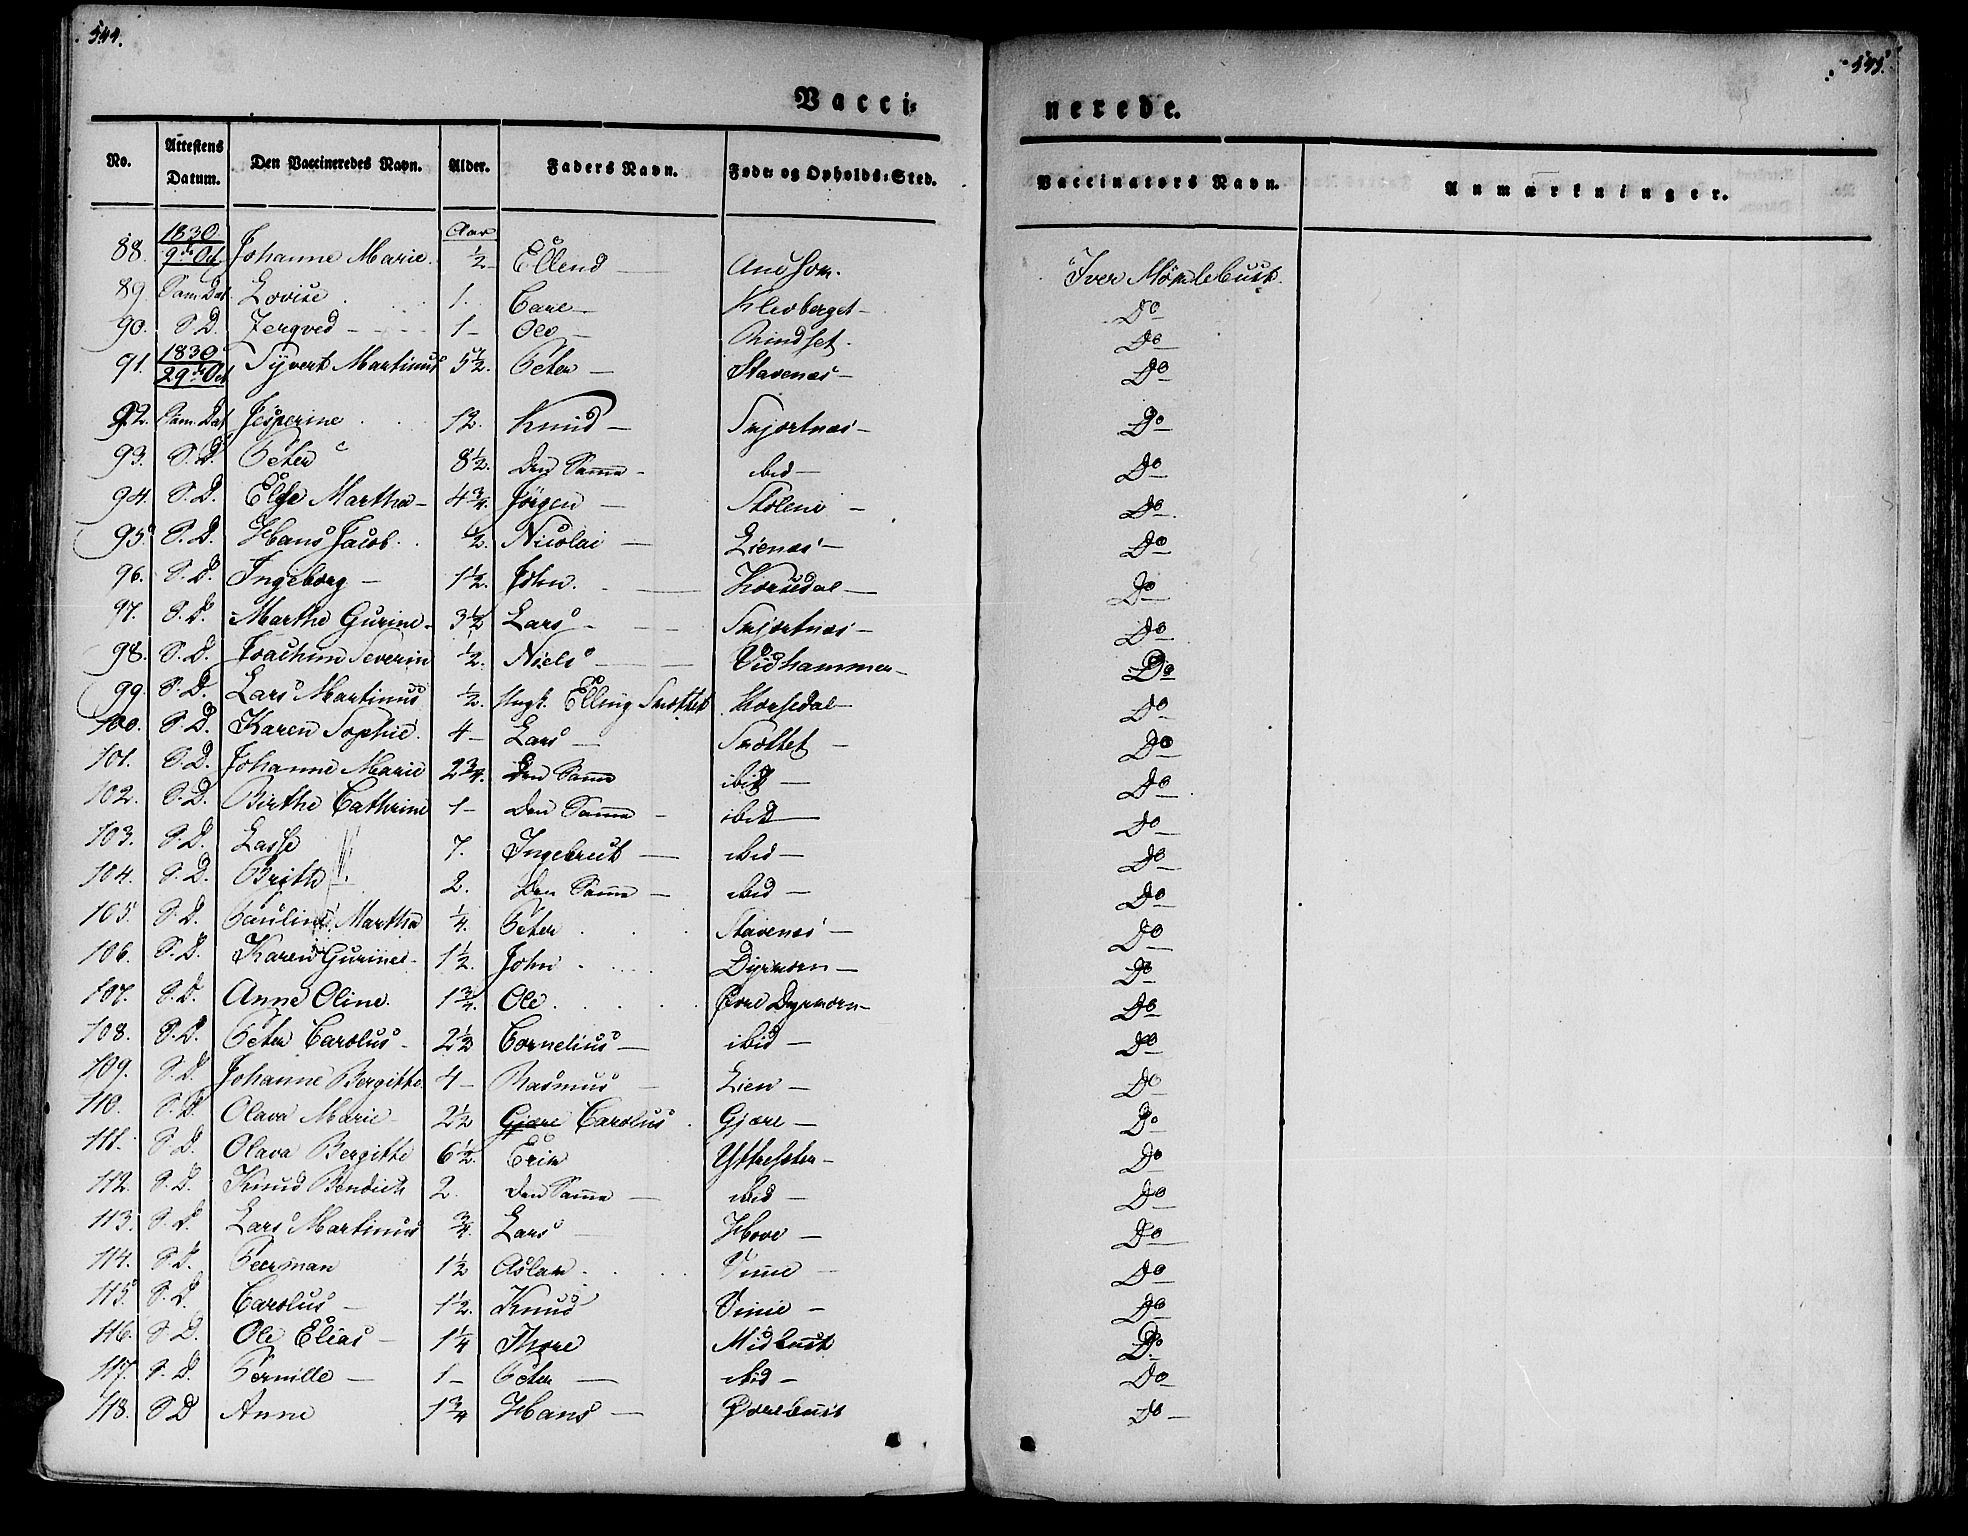 544.
545.
Vacci-
nerede.
No. Attestens Datum. Den Vaccineredes Navn. Alder. Faders Navn. Føde- og Opholds-Sted. Vaccinators Navn. Anmærkninger.
1830 Aar
88. 9de Oct Johanne Marie. 1/2 Ellend — Iver Mörkebust.
89. Sam. Dat. Lovise 1. — Klevberget — Do
90. S. D. — 1 — Ole — Rindset. Do
91. 1830 29de Oct Syvert Martinus 5 1/2. Peter — Stavenæs — Do
92. Sam. Dat. Jesperine 12. Knud — Skjortnæs — Do
93. S. D. Peter 8 1/2. Den Samme — ibid — Do
94. S. D. Else Martha — 4 3/4. Jörgen — Stölene — Do
95. S. D. Hans Jacob. 1/2. Nicolai — Lienæs — Do
96. S. D. Ingeborg — 1 1/2. John. — Korsedal — Do
97. S. D. Marthe Gurine. 3 1/2 Lars — Skjortnæs — Do
98. S. D. Joachim Severin 1/2. Niels — Vidhammer — Do
99. S. D. Lars Martinus 1/2. Ungk. Elling Skottet Korsedal — Do
100. S. D. Karen Sophie. 4 — Lars — Skottet — Do
101. S. D. Johanne Marie 2 3/4. Den Samme ibid — Do
102. S. D. Birthe Cathrine 1 — Den Samme — ibid — Do
103. S. D. Lasse 7. Ingebret — ibid — Do
104. S. D. Brithe 2. Den Samme — ibid — Do
105. S. D. Pauline Martha 1/4. Peter Stavenæs — Do
106. S. D. Karen Gurine 1 1/2. John Dyrkorn — Do
107. S. D. Anne Oline. 1 3/4. Ole Övre Dyrkorn — Do
108. S. D. Peter Carolus 2 1/2 Cornelius — ibid — Do
109. S. D. Johanne Bergitte 4 — Rasmus — Lien — Do
110. S. D. Olava Marie 2 1/2 Gjære Carolus Gjære — Do
111. S. D. Olava Bergitte 6 1/2. Erik Yttreseter — Do
112. S. D. Knud Bendick 2. Den Samme — ibid — Do
113. S. D. Lars Martinus 3/4. Lars — Hove — Do
114. S. D. Peerman 1 1/2 Aslak Vinie — Do
115. S. D. Carolus — 1 1/2. Knud Vinie — Do
116. S. D. Ole Elias — 1 1/4 Thore Midbust Do
117. S. D. Pernille — 1 — Peter — ibid — Do
118. S D Anne 1 3/4 Hans — Övrebust Do —